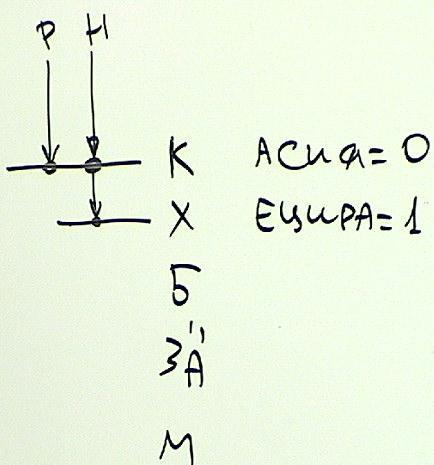 Р Н
К АСИЯ=0
Х ЕЦИРА=1
Б
З"А
М